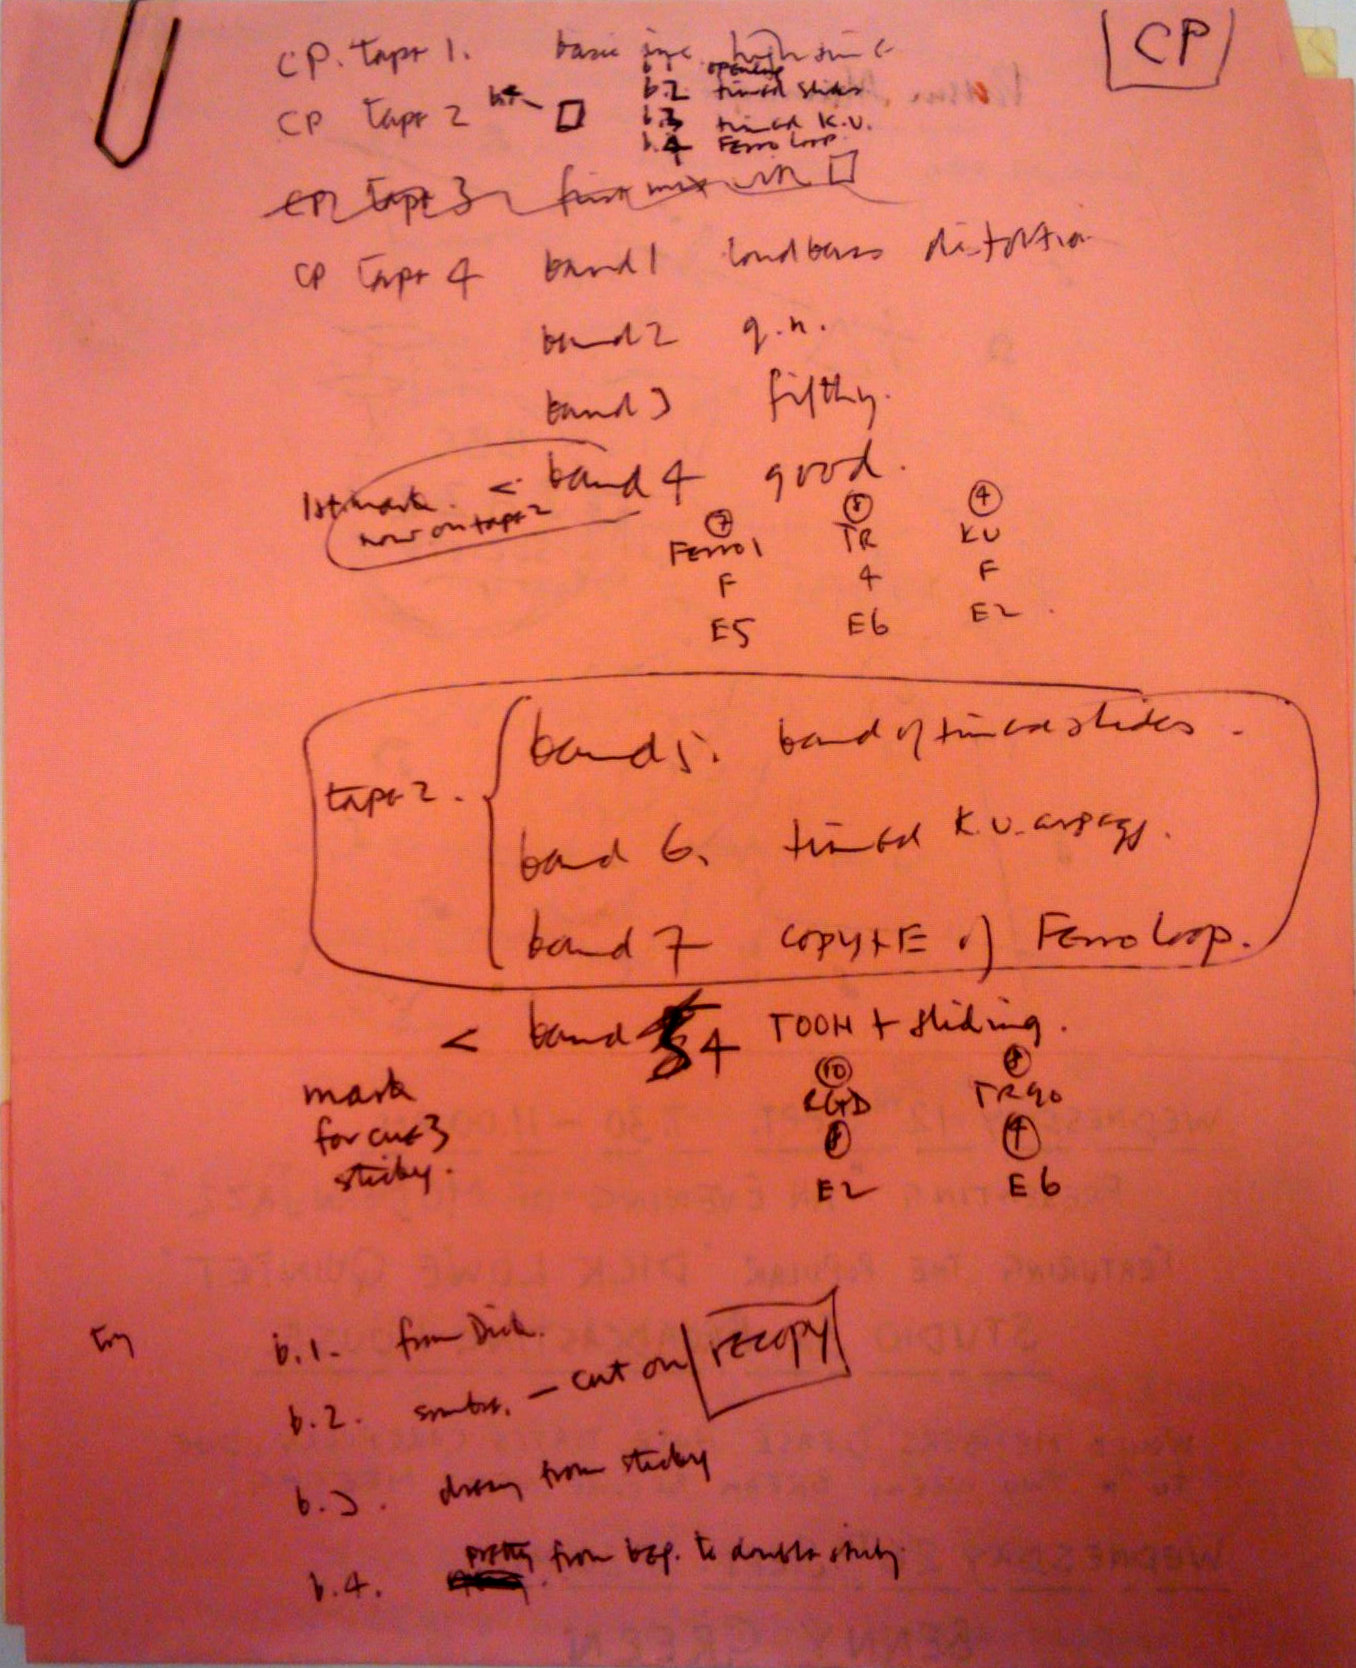 CP
CP. Tape 1. basic
b.1 opening
CP Tape 2 b.2 timed slides
b.3 timed K.U.
b.4 Ferro Loop
CP Tape 3 first mix with
CP Tape 4 band 1 loud bass distortion
band 2 q.n.
band 3 filthy.
1st mark. < band 4 good.
now on tape 2
7 8 4
Ferro 1 TR KU
F 4 F
E5 E6 E2
band 5. band of timed slides.
tape 2.
band 6. timed K.U. arpegg.
band 7 copy + E of Ferro Loop.
< band 4 TOOH + sliding.
mark 10 8
for cue 3 RGD TR90
sticky. 8 4
E2 E6
try b.1. from Dick.
b.2. — cut on recopy
b.3. dreamy from sticky
b.4. pretty from beg. to double sticky.
WEDNESDAY 12th 7.30 - 11.00
PRESENTING AN EVENING OF JAZZ
FEATURING THE POPULAR DICK LOWE QUINTET
STUDIO
WEDNESDAY
BENNY GREEN